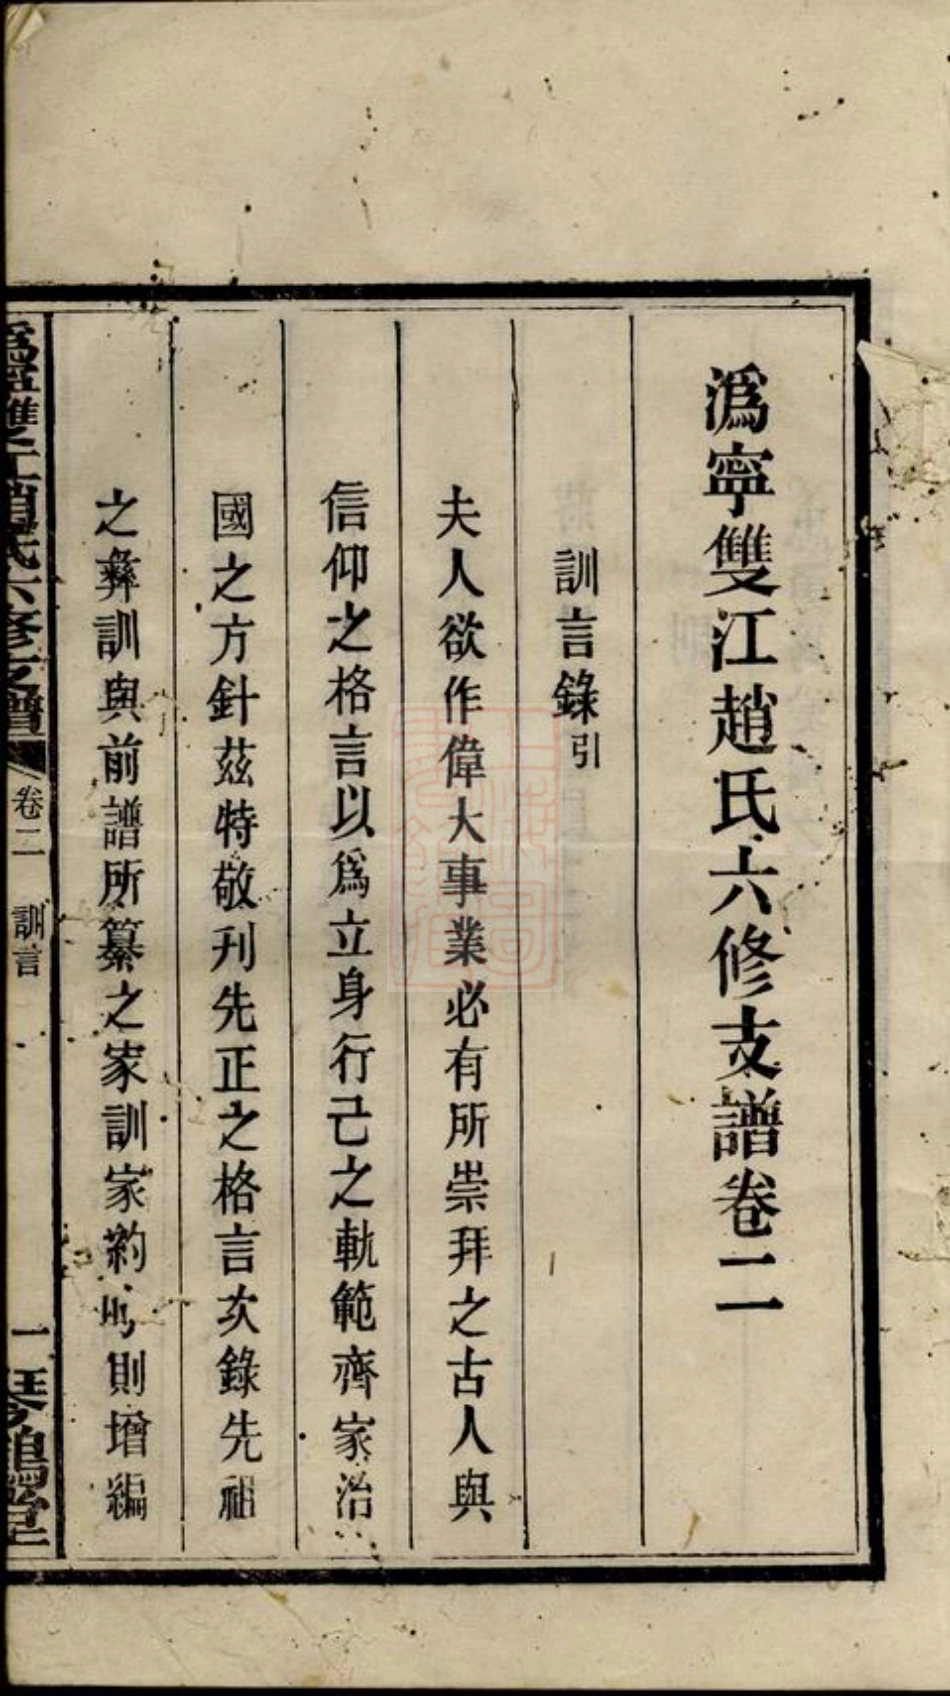 潙寧雙江趙氏六修支譜卷二
訓言錄引
夫人欲作偉大事業必有所崇拜之古人與
信仰之格言以爲立身行己之軌範齊家治
國之方針茲特敬刊先正之格言次錄先祖
之彝訓與前譜所纂之家訓家約 則增編
潙寧雙江趙氏六修支譜 卷二 訓言 一 琴鶴堂